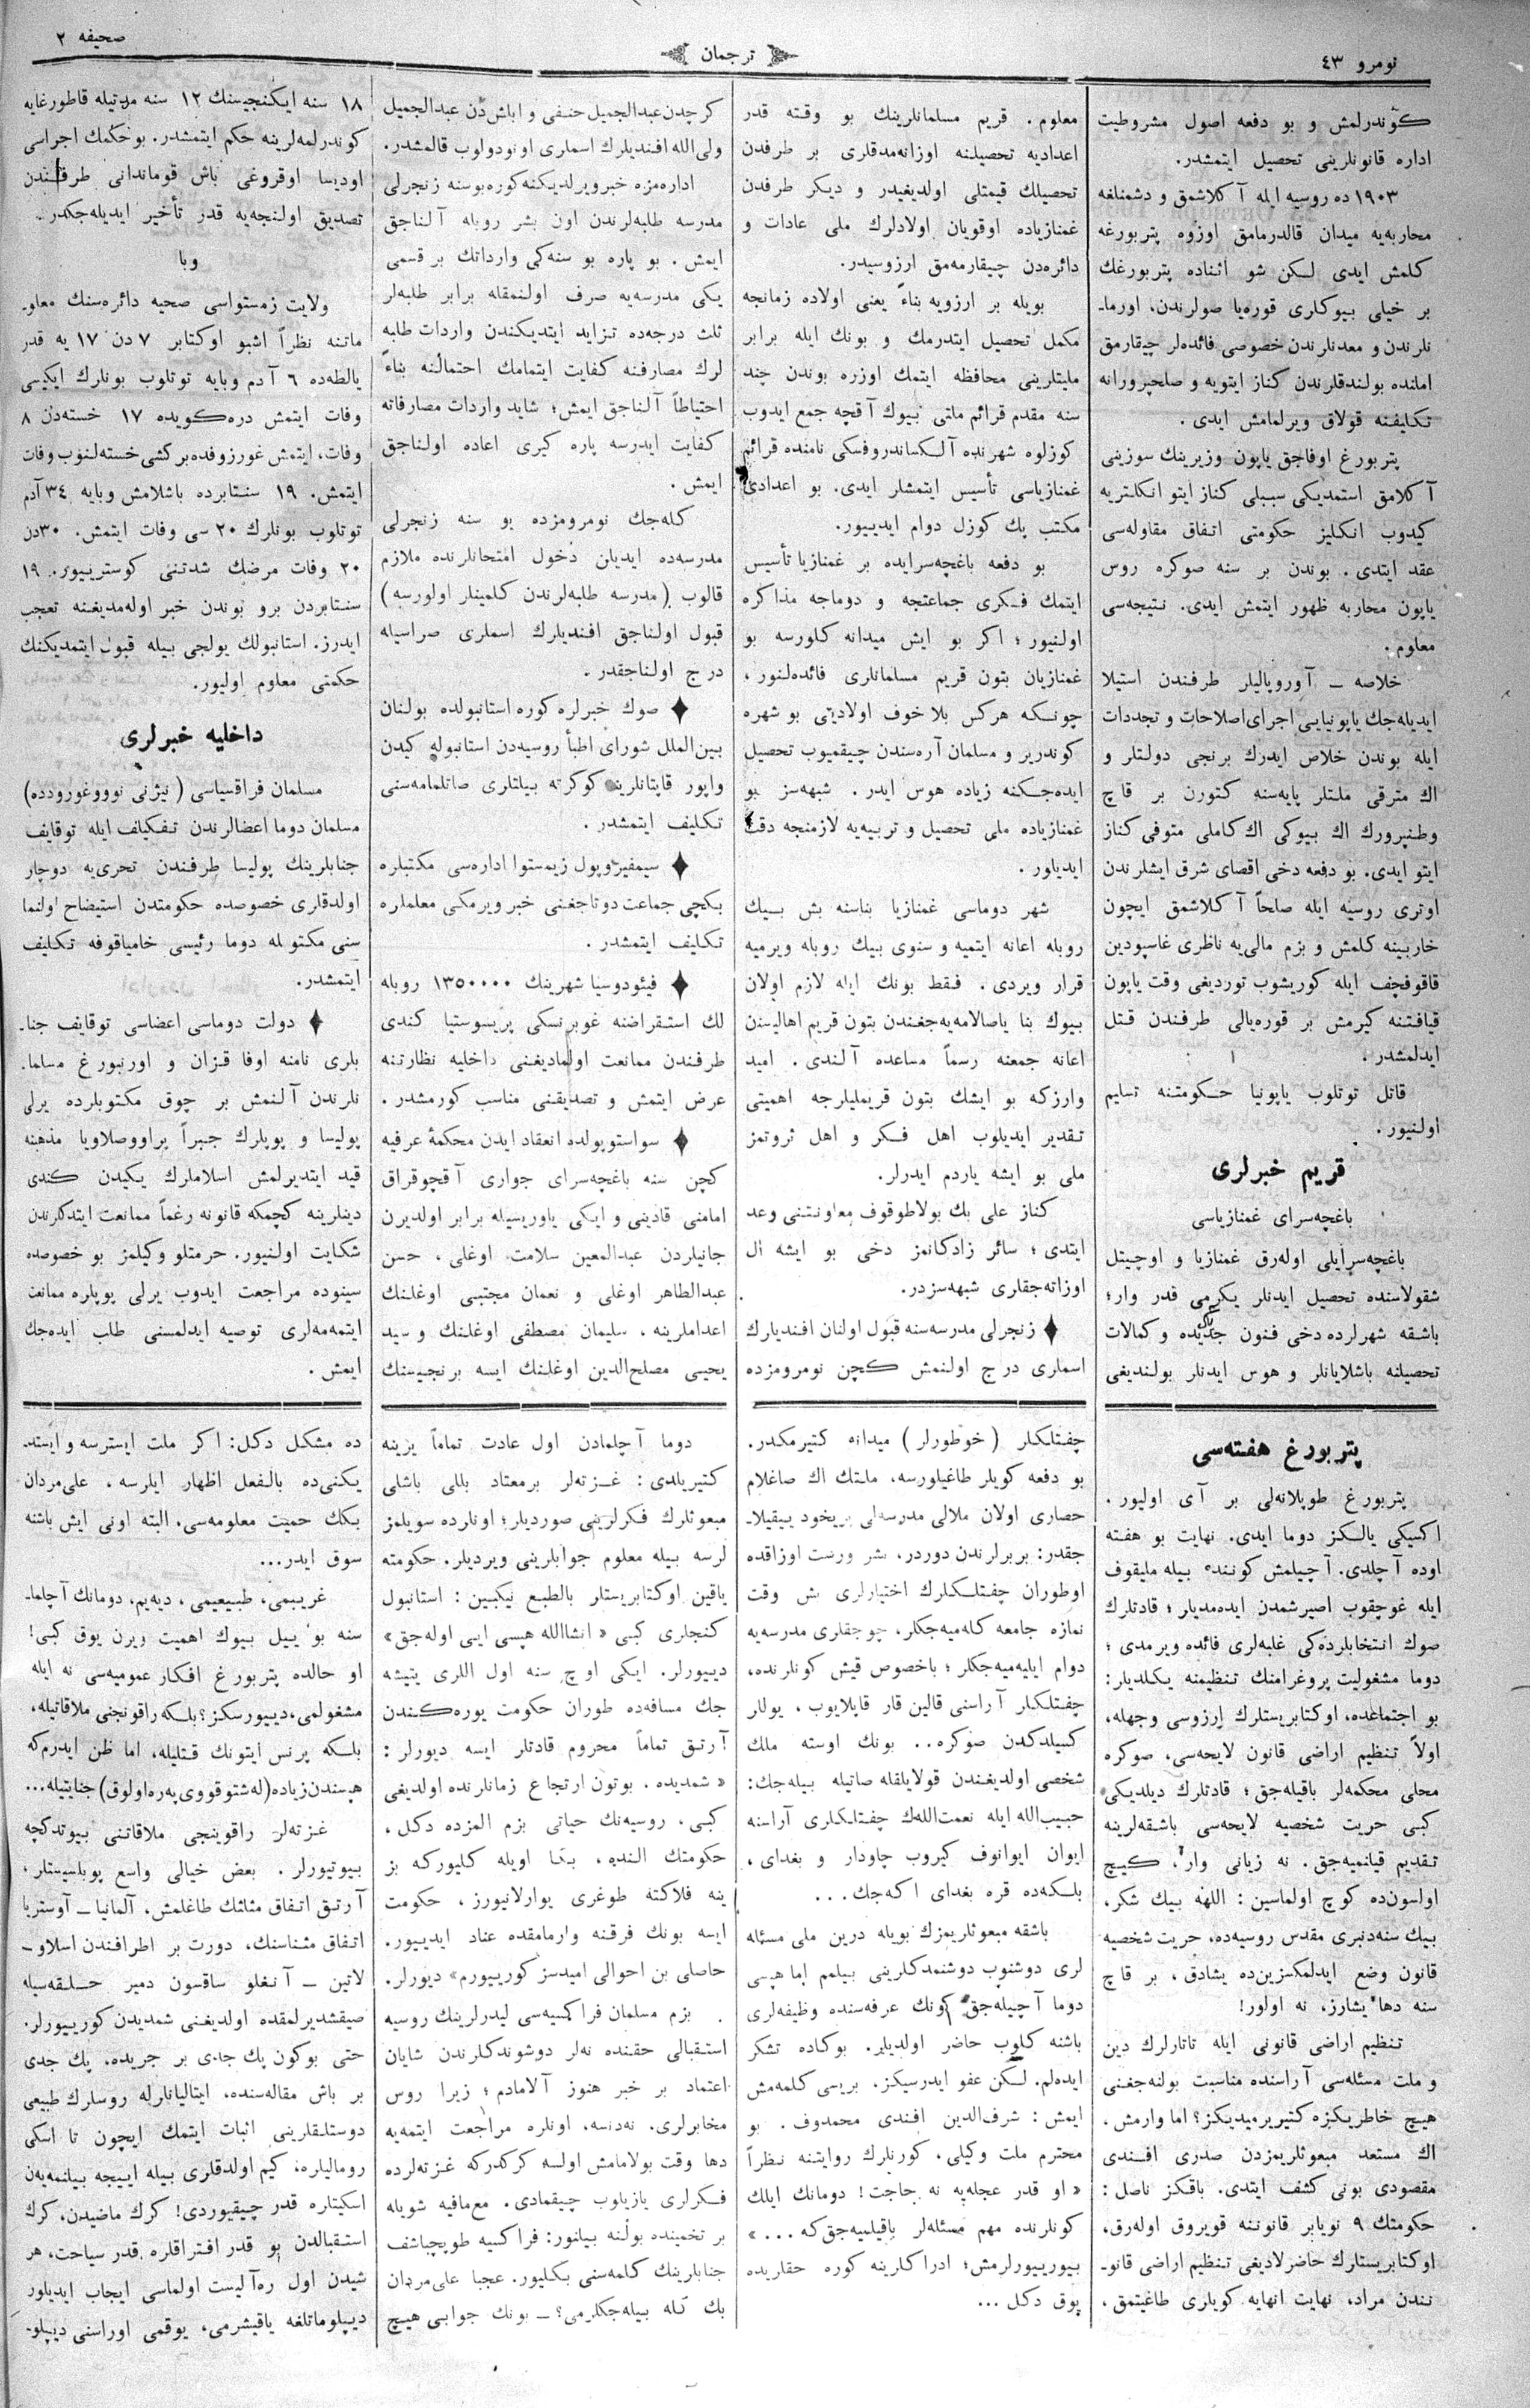 نومرو ٤٣
ترجمان
صحیفه ٢
كوندرلمش و بو دفعه اصول مشروطیت
اداره قانونلرینی تحصیل ایتمشدر.
١٩٠٣ ده روسیه ایله آكلاشمق و دشمنلغه
محاربه‌یه میدان قالدرمامق اوزوه پتربورغه
كلمش ایدی لكن شو اثناده پتربورغك
بر خیلی بیوكاری قوره‌یا صولرندن، اورما۔
نلرندن و معدنلرندن خصوصی فائده‌لر چیقارمق
امانده بولندقلرندن كناز ایتویه و صلحپرورانه
تكلیفنه قولاق ویرلمامش ایدی.
پتربورغ اوفاجق یاپون وزیرینك سوزینی
آكلامق استمدیكی سببلی كناز ایتو انكلتریه
كیدوب انكلیز حكومتی اتفاق مقاوله‌سی
عقد ایتدی. بوندن بر سنه صوكره روس
یاپون محاربه ظهور ایتمش ایدی. نتیجه‌سی
معلوم.
خلاصه ــ آوروپالیلر طرفندن استیلا
ایدیله‌جك یاپونیایی اجرای اصلاحات و تجددات
ایله بوندن خلاص ایدرك برنجی دولتلر و
اك مترقی ملتلر پایه‌سنه كتورن بر قاچ
وطنپرورك اك بیوكی اك كاملی متوفی كناز
ایتو ایدی. بو دفعه دخی اقصای شرق ایشلرندن
اوتری روسیه ایله صلحاً آكلاشمق ایچون
خاربینه كلمش و بزم مالی‌یه ناظری غاسپودین
قاقوفچف ایله كوریشوب توردیغی وقت یاپون
قیافتنه كیرمش بر قوره‌یالی طرفندن قتل
ایدلمشدر.
قاتل توتلوب یاپونیا حكومتنه تسلیم
اولنیور.
قریم خبرلری
باغچه‌سرای غمنازیاسی
باغچه‌سرایلی اوله‌رق غمنازیا و اوچیتل
شقولاسنده تحصیل ایدنلر یكرمی قدر وار؛
باشقه شهرلرده دخی فنون جدیده و كمالات
تحصیلنه باشلایانلر و هوس ایدنلر بولندیغی
معلوم. قریم مسلمانلرینك بو وقته قدر
اعدادیه تحصیلنه اوزانه‌مدقلری بر طرفدن
تحصیلك قیمتلی اولدیغیدر و دیكر طرفدن
غمنازیاده اوقویان اولادلرك ملی عادات و
دائره‌دن چیقارمه‌مق ارزوسیدر.
بویله بر ارزویه بناءً یعنی اولاده زمانجه
مكمل تحصیل ایتدرمك و بونك ایله برابر
ملیتلرینی محافظه ایتمك اوزره بوندن چند
سنه مقدم قرائم ملتی بیوك آقچه جمع ایدوب
كوزلوه شهرنده آلكساندروفسكی نامنده قرائم
غمنازیاسی تأسیس ایتمشلر ایدی. بو اعدادی
مكتب پك كوزل دوام ایدییور.
بو دفعه باغچه‌سرایده بر غمنازیا تأسیس
ایتمك فكری جماعتجه و دوماجه مذاكره
اولنیور؛ اكر بو ایش میدانه كلورسه بو
غمنازیان بتون قریم مسلمانلری فائده‌لنور،
چونكه هركس بلا خوف اولادینی بو شهره
كوندریر و مسلمان آره‌سندن چیقمیوب تحصیل
ایده‌جكنه زیاده هوس ایدر. شبهه‌سز بو
غمنازیاده ملی تحصیل و تربیه‌یه لازمنجه دقت
ایدیلور.
شهر دوماسی غمنازیا بناسنه بش بیك
روبله اعانه ایتمیه و سنوی بیك روبله ویرمیه
قرار ویردی. فقط بونك ایله لازم اولان
بیوك بنا یاصالامه‌یه‌جغندن بتون قریم اهالیسندن
اعانه جمعنه رسماً مساعده آلندی. امید
وارزكه بو ایشك بتون قریملیلرجه اهمیتی
تقدیر ایدیلوب اهل فكر و اهل ثروتمز
ملی بو ایشه یاردم ایدرلر.
كناز علی بك بولاطوقوف معاونتنی وعد
ایتدی؛ سائر زادكانمز دخی بو ایشه ال
اوزاته‌جقلری شبهه‌سزدر.
♦ زنجرلی مدرسه‌سنه قبول اولنان افندیلرك
اسملری درج اولنمش كچن نومرومزده
كرچدن عبدالجمیل حنفی و اباش‌دن عبدالجمیل
ولی‌الله افندیلرك اسملری اونودولوب قالمشدر.
اداره‌مزه خبر ویرلدیكنه كوره بو سنه زنجرلی
مدرسه طلبه‌لرندن اون بشر روبله آلناجق
ایمش. بو پاره بو سنه‌كی وارداتك بر قسمی
یكی مدرسه‌یه صرف اولنمقله برابر طلبه‌لر
ثلث درجه‌ده تزاید ایتدیكندن واردات طلبه
لرك مصارفنه كفایت ایتمامك احتمالنه بناءً
احتیاطاً آلناجق ایمش؛ شاید واردات مصارفاته
كفایت ایدرسه پاره كیری اعاده اولناجق
ایمش.
كله‌جك نومرومزده بو سنه زنجرلی
مدرسه‌ده ایدیان دخول امتحانلرنده ملازم
قالوب (مدرسه طلبه‌لرندن كلمینلر اولورسه)
قبول اولناجق افندیلرك اسملری صراسیله
درج اولناجقدر.
♦ صوك خبرلره كوره استانبولده بولنان
بین‌الملل شورای اطبأ روسیه‌دن استانبوله كیدن
واپور قاپتانلرینه كوكرته بیلتلری صاتلمامه‌سنی
تكلیف ایتمشدر.
♦ سیمفیرَوپول زیمستوا اداره‌سی مكتبلره
بكچی جماعت دوتاجغنی خبر ویرمكی معلملره
تكلیف ایتمشدر.
♦ فیئودوسیا شهرینك ١٣٥٠٠٠٠ روبله
لك استقراضنه غوبرنسكی پریسوستیا كندی
طرفندن ممانعت اولمادیغنی داخلیه نظارتنه
عرض ایتمش و تصدیقنی مناسب كورمشدر.
♦ سواستوپولده انعقاد ایدن محكمهٔ عرفیه
كچن سنه باغچه‌سرای جواری آقچوقراق
امامنی قادینی و ایكی یاوریسیله برابر اولدیرن
جانیلردن عبدالمعین سلامت اوغلی، حسن
عبدالطاهر اوغلی و نعمان مجتبی اوغلنك
اعداملرینه، سلیمان مصطفی اوغلنك و سید
یحیی مصلح‌الدین اوغلنك ایسه برنجیسنك
١٨ سنه ایكنجیسنك ١٢ سنه مدتیله قاطورغایه
كوندرلمه‌لرینه حكم ایتمشدر. بو حكمك اجراسی
اودیسا اوقروغی باش قوماندانی طرفندن
تصدیق اولنجه‌یه قدر تأخیر ایدیله‌جكدر.
وبا
ولایت زمستواسی صحیه دائره‌سنك معلو۔
ماتنه نظراً اشبو اوكتابر ٧ دن ١٧ یه قدر
یالطه‌ده ٦ آدم وبایه توتلوب بونلرك ایكیسی
وفات ایتمش دره‌كویده ١٧ خسته‌دن ٨
وفات، ایتمش غورزوفده بر كشی خسته‌لنوب وفات
ایتمش. ١٩ سنتابرده باشلامش وبایه ٣٤ آدم
توتلوب بونلرك ٢٠ سی وفات ایتمش. ٣٠دن
٢٠ وفات مرضك شدتنی كوسترییور. ١٩
سنتابردن برو بوندن خبر اوله‌مدیغنه تعجب
ایدرز. استانبولك یولجی بیله قبول ایتمدیكنك
حكمتی معلوم اولیور.
داخلیه خبرلری
مسلمان فراقسیاسی (نیژنی نوووغوروده)
مسلمان دوما اعضالرندن تفكیلف ایله توقایف
جنابلرینك پولیسا طرفندن تحری‌یه دوچار
اولدقلری خصوصده حكومتدن استیضاح اولنما
سنی مكتوبله دوما رئیسی خامیاقوفه تكلیف
ایتمشدر.
♦ دولت دوماسی اعضاسی توقایف جنا۔
بلری نامنه اوفا قزان و اورنبورغ مسلما۔
نلرندن آلنمش بر چوق مكتوبلرده یرلی
پولیسا و پوپلرك جبراً پراووصلاویا مذهبنه
قید ایتدیرلمش اسلاملرك یكیدن كندی
دینلرینه كچمكه قانونه رغماً ممانعت ایتدكلرندن
شكایت اولنیور. حرمتلو وكیلمز بو خصوصده
سینوده مراجعت ایدوب یرلی پوپلره ممانعت
ایتمه‌مه‌لری توصیه ایدلمسنی طلب ایده‌جك
ایمش.
پتربورغ هفته‌سی
پتربورغ طوپلانه‌لی بر آی اولیور.
اكسیكی یالكز دوما ایدی. نهایت بو هفته
اوده آچلدی. آچیلمش كوننده بیله ملیقوف
ایله غوچقوب اصیرشمدن ایده‌مدیلر؛ قادتلرك
صوك انتخابلرده‌كی غلبه‌لری فائده ویرمدی؛
دوما مشغولیت پروغرامنك تنظیمنه یكلدیلر:
بو اجتماعده، اوكتابریستلرك ارزوسی وجهله،
اولاً تنظیم اراضی قانون لایحه‌سی، صوكره
محلی محكمه‌لر باقیله‌جق؛ قادتلرك دیلدیكی
كبی حریت شخصیه لایحه‌سی باشقه‌لرینه
تقدیم قیلنمیه‌جق. نه زیانی وار، كیچ
اواسون‌ده كوچ اولماسین: اللهه بیك شكر،
بیك سنه‌دنبری مقدس روسیه‌ده، حریت شخصیه
قانون وضع ایدلمكسزین‌ده یشادق، بر قاچ
سنه دها یشارز، نه اولور!
تنظیم اراضی قانونی ایله تاتارلرك دین
و ملت مسئله‌سی آراسنده مناسبت بولنه‌جغنی
هیچ خاطریكزه كتیریرمیدیكز؟ اما وارمش.
اك مستعد مبعوثلریمزدن صدری افندی
مقصودی بونی كشف ایتدی. باقكز ناصل:
حكومتك ٩ نویابر قانوننه قویروق اوله‌رق،
اوكتابریستلرك حاضرلادیغی تنظیم اراضی قانو۔
نندن مراد، نهایت انهایه كویلری طاغیتمق،
چفتلكلر (خوطورلر) میدانه كتیرمكدر.
بو دفعه كویلر طاغیلورسه، ملتك اك صاغلام
حصاری اولان ملالی مدرسه‌لی بریخود ییقیلا۔
جقدر: بربرلرندن دوردر، بشر ورست اوزاقده
اوطوران چفتلكلرك اختیارلری بش وقت
نمازه جامعه كله‌میه‌جكلر، چوجقلری مدرسه‌یه
دوام ایلیه‌میه‌جكلر؛ باخصوص قیش كونلرنده،
چفتلكلر آراسنی قالین قار قاپلایوب، یوللر
كسیلدكدن صوكره.. بونك اوسته ملك
شخصی اولدیغندن قولایلقله صاتیله بیله‌جك:
حبیب‌الله ایله نعمت‌اللهك چفتلكلری آراسنه
ایوان ایوانوف كیروب چاودار و بغدای،
بلكه‌ده قره بغدای اكه‌جك...
باشقه مبعوثلریمزك بویله درین ملی مسئله
لری دوشنوب دوشنمدكلرینی بیلمم اما هپسی
دوما آچیله‌جق كونك عرفه‌سنده وظیفه‌لری
باشنه كلوب حاضر اولدیلر. بوكاده تشكر
ایده‌لم. لكن عفو ایدرسیكز. بریسی كلمه‌مش
ایمش: شرف‌الدین افندی محمدوف. بو
محترم ملت وكیلی، كورنلرك روایتنه نظراً
«او قدر عجله‌یه نه حاجت! دومانك ایلك
كونلرنده مهم مسئله‌لر باقیلمیه‌جق‌كه...»
بیورییورلرمش؛ ادراكلرینه كوره حقلریده
یوق دكل...
دوما آچلمادن اول عادت تماماً یرینه
كتیریلدی: غزته‌لر برمعتاد بللی باشلی
مبعوثلرك فكرلرینی صوردیلر؛ اونلرده سویلمز
لرسه بیله معلوم جوابلرینی ویردیلر. حكومته
یاقین اوكتابریستلر بالطبع نیكبین: استانبول
كنجلری كبی «انشاالله هپسی ایی اوله‌جق»
دییورلر. ایكی اوچ سنه اول اللری یتیشه
جك مسافه‌ده طوران حكومت یوره‌كندن
آرتق تماماً محروم قادتلر ایسه دیورلر:
«شمدیده، بوتون ارتجاع زمانلرنده اولدیغی
كبی، روسیه‌نك حیاتی بزم المزده دكل،
حكومتك النده، بكا اویله كلیوركه بز
ینه فلاكته طوغری یوارلانیورز، حكومت
ایسه بونك فرقنه وارمامقده عناد ایدییور.
حاصلی بن احوالی امیدسز كورییورم» دیورلر.
بزم مسلمان فراكسیه‌سی لیدرلرینك روسیه
استقبالی حقنده نه‌لر دوشوندكلرندن شایان
اعتماد بر خبر هنوز آلامادم؛ زیرا روس
مخابرلری، نه‌دنسه، اونلره مراجعت ایتمه‌یه
دها وقت بولامامش اولسه كركدركه غزته‌لرده
فكرلری یازیلوب چیقمادی. مع‌مافیه شویله
بر تخمینده بولنه بیلنور: فراكسیه طوپچیباشف
جنابلرینك كلمه‌سنی بكلیور. عجبا علی‌مردان
بك كله بیله‌جكلرمی؟ ــ بونك جوابی هیچ
ده مشكل دكل: اكر ملت ایسترسه و ایستد۔
یكنی‌ده بالفعل اظهار ایلرسه، علی‌مردان
بكك حمیت معلومه‌سی، البته اونی ایش باشنه
سوق ایدر...
غریبمی، طبیعیمی، دیه‌یم، دومانك آچلما۔
سنه بو ییل بیوك اهمیت ویرن یوق كبی!
او حالده پتربورغ افكار عمومیه‌سی نه ایله
مشغولمی، دییورسكز؟ بلكه راقونجنی ملاقاتیله،
بلكه پرنس ایتونك قتلیله، اما ظن ایدرم‌كه
هپسندن زیاده (له‌شتوقووی په‌ره‌اولوق) جنایتیله...
غزته‌لر راقوینجی ملاقاتنی بیوتدكچه
بیوتیورلر. بعض خیالی واسع پوبلسیستلر،
آرتق اتفاق مثلثك طاغلمش، آلمانیا ــ آوستریا
اتفاق مثناسنك، دورت بر اطرافندن اسلاو ــ
لاتین ــ آنغلو ساقسون دمیر حلقه‌سیله
صیقشدیرلمقده اولدیغنی شمدیدن كورییورلر.
حتی بوكون پك جدی بر جریده، پك جدی
بر باش مقاله‌سنده، ایتالیانلرله روسلرك طبیعی
دوستلقلرینی اثبات ایتمك ایچون تا اسكی
رومالیلره، كیم اولدقلری بیله ایییجه بیلنمه‌یه‌ن
اسكیتلره قدر چیقیوردی! كرك ماضیدن، كرك
استقبالدن بو قدر افتراقلره قدر سیاحت، هر
شیدن اول ره‌آلیست اولماسی ایجاب ایدیلور
دیپلوماتلغه یاقیشرمی، یوقمی اوراسنی دیپلو۔